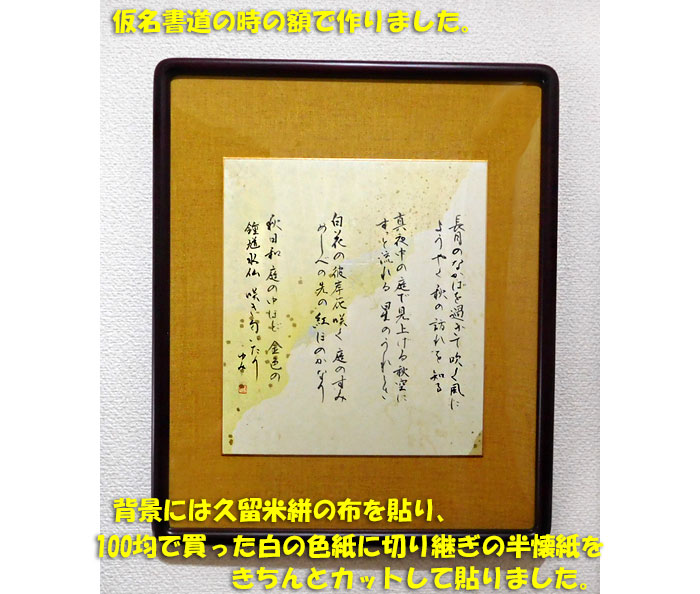 仮名書道の時の額で作りました。
長月のなかばを過ぎて吹く風に
ようやく秋の訪れを知る
真夜中の庭で見上げる秋空に
すっと流れる星のうれしき
白花の彼岸花咲く庭のすみ
めしべの先の紅ほのかなり
秋日和庭の中ほど金色の
鍾馗水仙咲き
たり
背景には久留米絣の布を貼り、
100均で買った白の色紙に切り継ぎの半懐紙を
きちんとカットして貼りました。